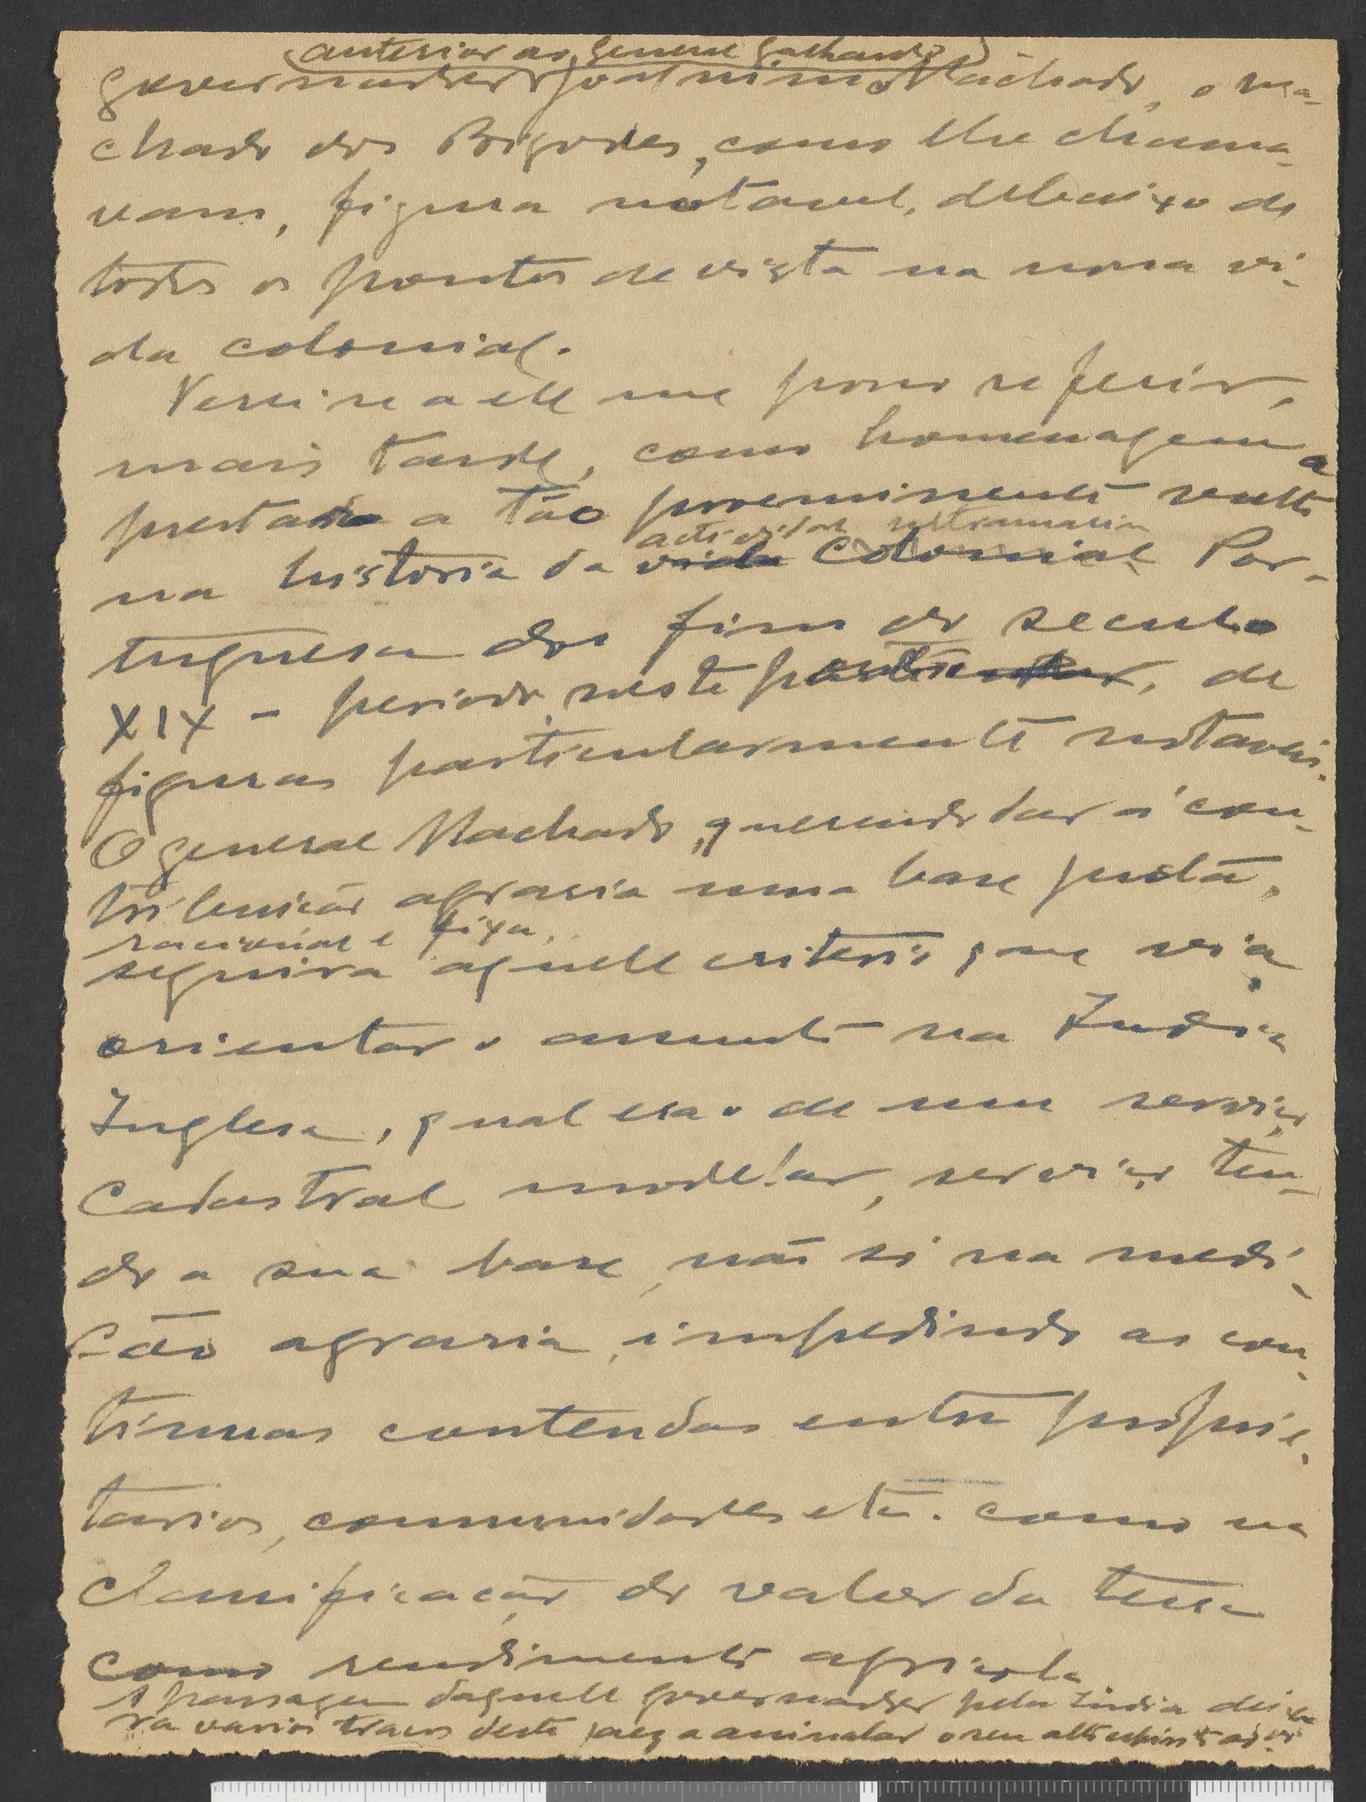 (anterior ao General Galhardo)
governador Joaquim Machado, o Ma-
chado dos Bigodes, como lhe chama-
vam, figura notavel, debaixo de
todos os pontos de vista na nossa vi-
da colonial.
Verei se a elle me posso referir,
mais tarde, como homenagem
prestada a tão proeminente vulto
actividade ultramarina
na historia da vida colonial Por-
tuguesa do fim do seculo
XIX - periodo, neste particular, de
figuras particularmente notaveis.
O general Machado, querendo dar á con-
tribuição agraria uma base justa,
racional e fixa,
seguira aquelle criterio que via
orientar o assunto na India
Inglesa, qual era o de um serviço
cadastral modelar, serviço ten-
do a sua base, não só na medi-
ção agraria, impedindo as con-
tinuas contendas entre proprie-
tarios, comunidades etc. como na
classificação do valor da terra
como rendimento agricola
A passagem daquelle governador pela India deixa-
ra varios traços deste jaez a assinalar o seu alto espirito